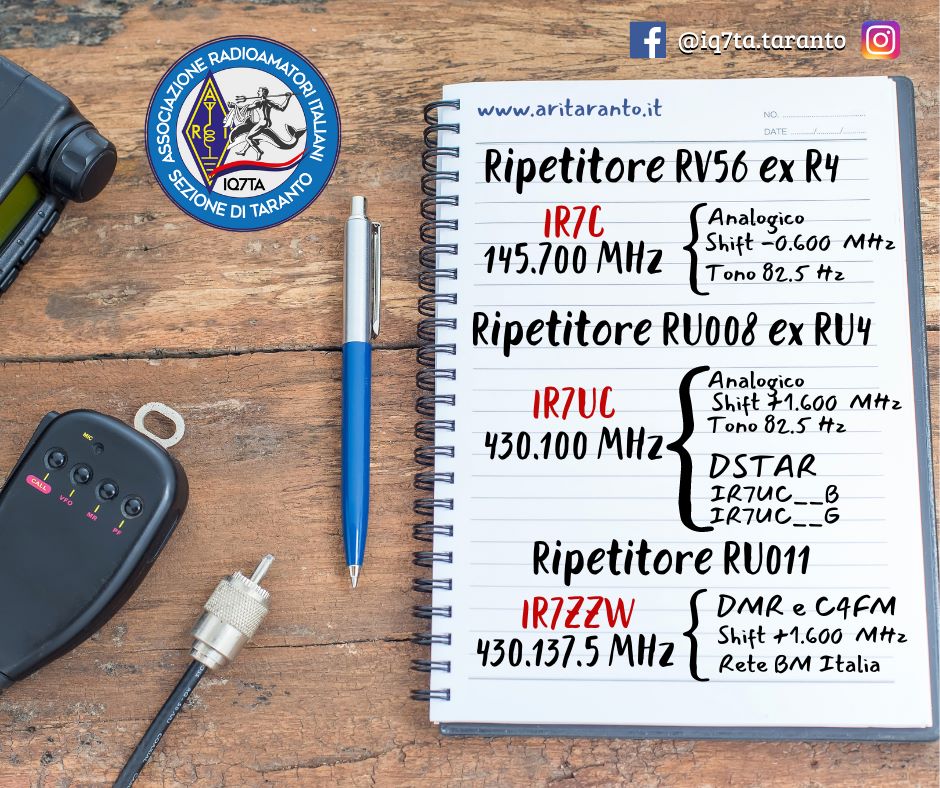 @iq7ta.taranto
ASSOCIAZIONE RADIOAMATORI ITALIANI
A
R I
T
IQ7TA
SEZIONE DI TARANTO
www.aritaranto.it
NO.
DATE / /
Ripetitore RV56 ex R4
IR7C
145.700 MHz
Analogico
Shift -0.600 MHz
Tono 82.5 Hz
Ripetitore RU008 ex RU4
IR7UC
430.100 MHz
Analogico
Shift +1.600 MHz
Tono 82.5 Hz
DSTAR
IR7UC__B
IR7UC__G
Ripetitore RU011
IR7ZZW
430.137.5 MHz
DMR e C4FM
Shift +1.600 MHz
Rete BM Italia
MIC
CALL
VFO
MR
PF